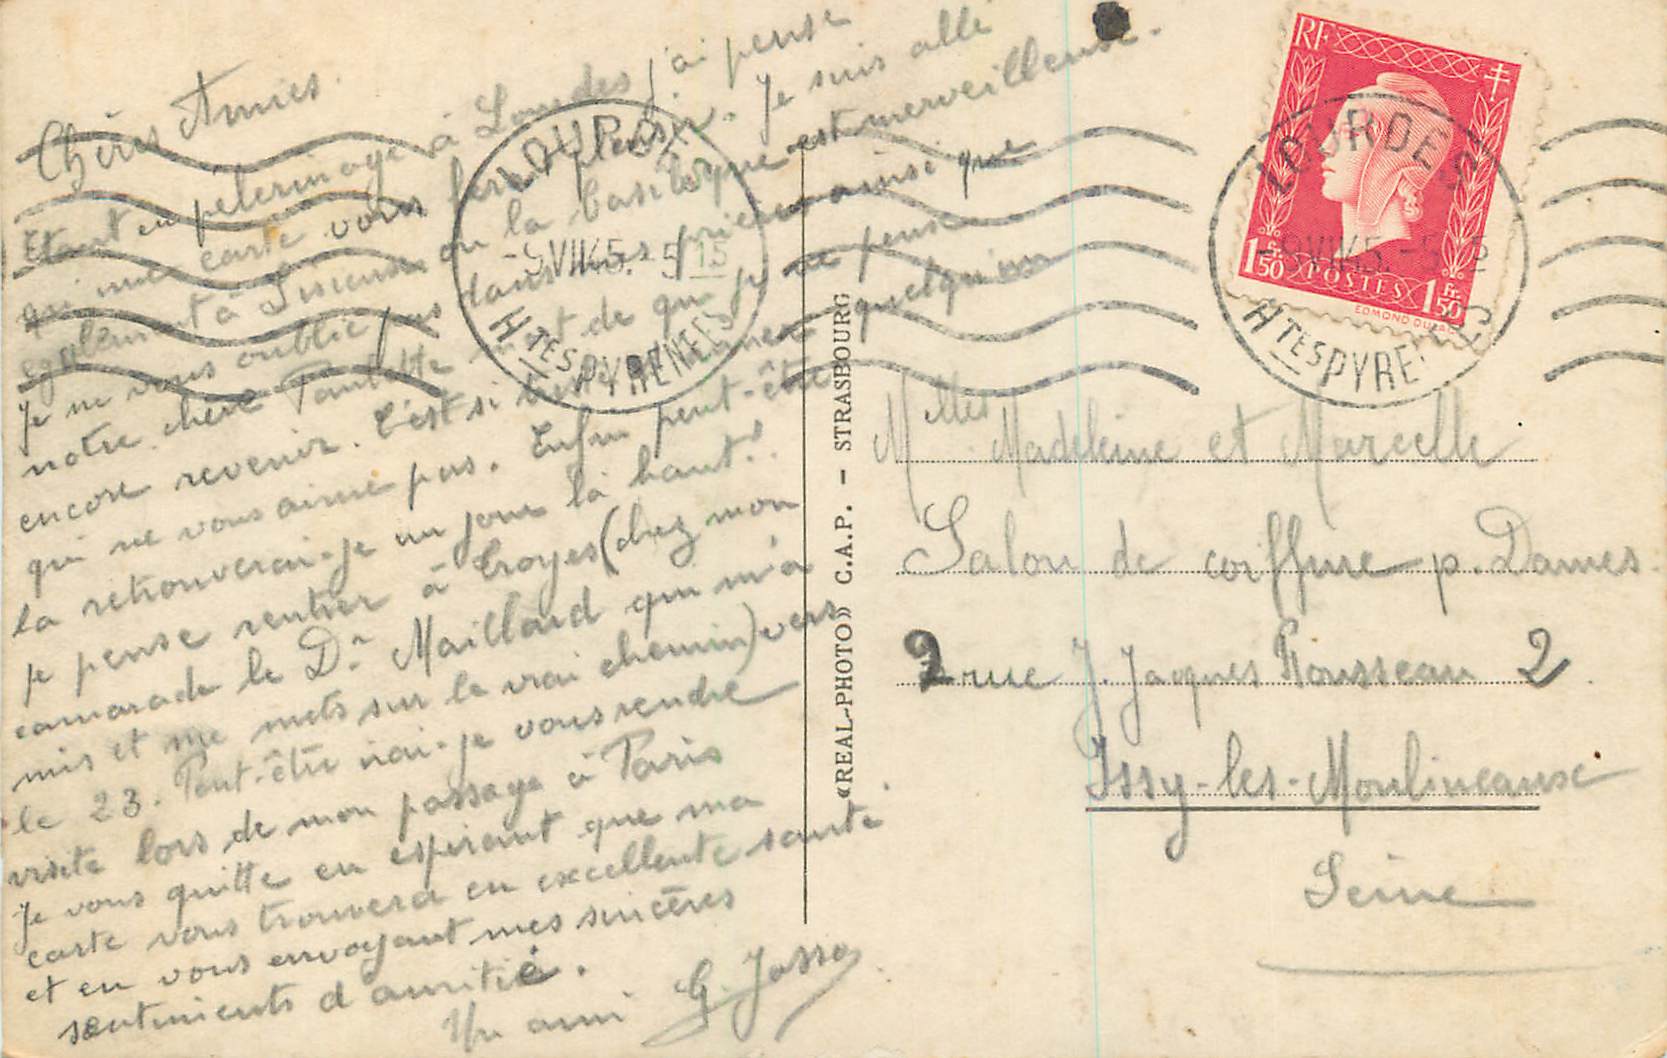 Chères Amies.
Etant en pèlerinage à Lourdes j'ai pensé
qu'une carte vous fera plaisir. Je suis allé
également à Lisieux où la basilique est merveilleuse.
Je ne vous oublie pas dans mes prières ainsi que
notre chère Paulette et de qui je ne pense
encore revenir. C'est si triste d'aimer quelqu'un
qui ne vous aime pas. Enfin peut-être
la retrouverai-je un jour là haut!.
je pense rentrer à Troyes (chez mon
camarade le Dr. Maillard qui m'a
mis et me mets sur le vrai chemin) vers
le 23. Peut-être irai-je vous rendre
visite lors de mon passage à Paris
Je vous quitte en espérant que ma
carte vous trouvera en excellente santé
et en vous envoyant mes sincères
sentiments d'amitié.
Un ami G. Josso
LOURDES
-9 VII 45. 5 15
HTES PYRENEES
«REAL-PHOTO» C.A.P. - STRASBOURG
RF
1 Fr. 50 POSTES 1 Fr. 50
EDMOND DULAC
LOURDES
-9 VII 45 -5 15
HTES PYRENEES
Melles Madeleine et Marcelle
Salon de coiffure p. Dames.
2 rue J. Jacques Rousseau 2.
Issy-les-Moulineaux
Seine